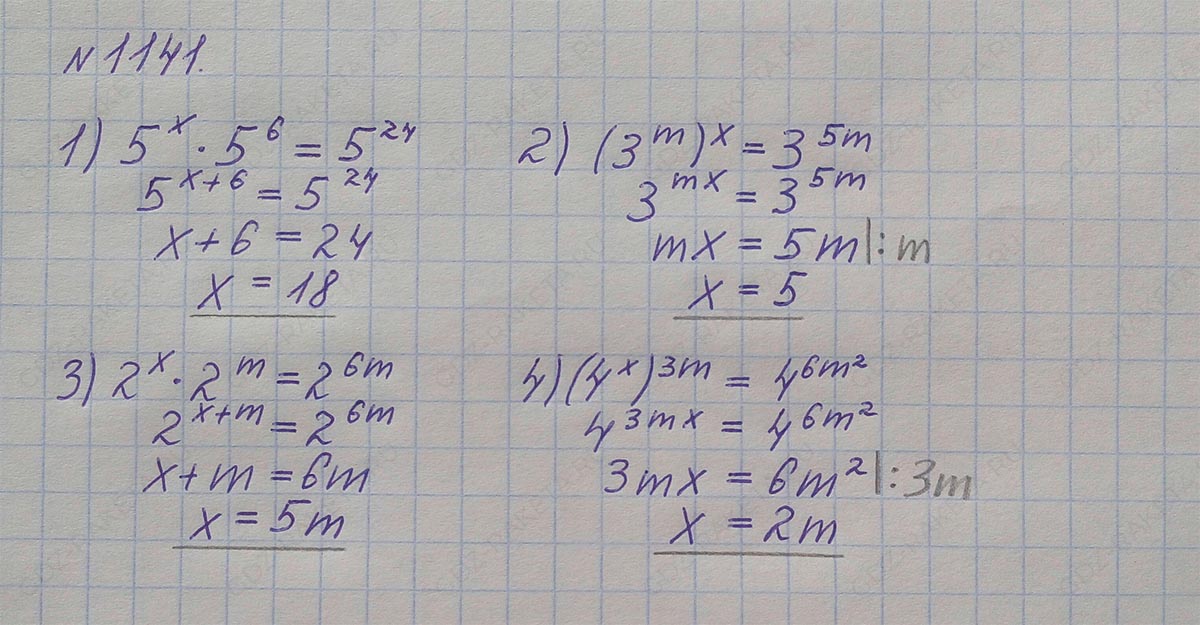 N 1141.
1) 5^x · 5^6 = 5^24
5^(x+6) = 5^24
x + 6 = 24
x = 18
2) (3^m)^x = 3^(5m)
3^(mx) = 3^(5m)
mx = 5m |: m
x = 5
3) 2^x · 2^m = 2^(6m)
2^(x+m) = 2^(6m)
x + m = 6m
x = 5m
4) (4^x)^(3m) = 4^(6m²)
4^(3mx) = 4^(6m²)
3mx = 6m² |: 3m
x = 2m